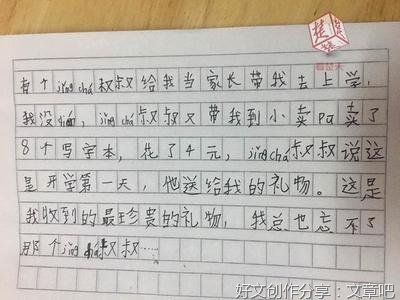 有个jing chá叔叔给我当家长带我去上学，
我没qián，jǐng chá叔叔又带我到小卖pù卖了
8个写字本，花了4元，jǐng chá叔叔说这
是开学第一天，他送给我的礼物。这是
我收到的最珍贵的礼物，我总也忘不了
那个jǐng chá叔叔……
好文创作分享：文章吧